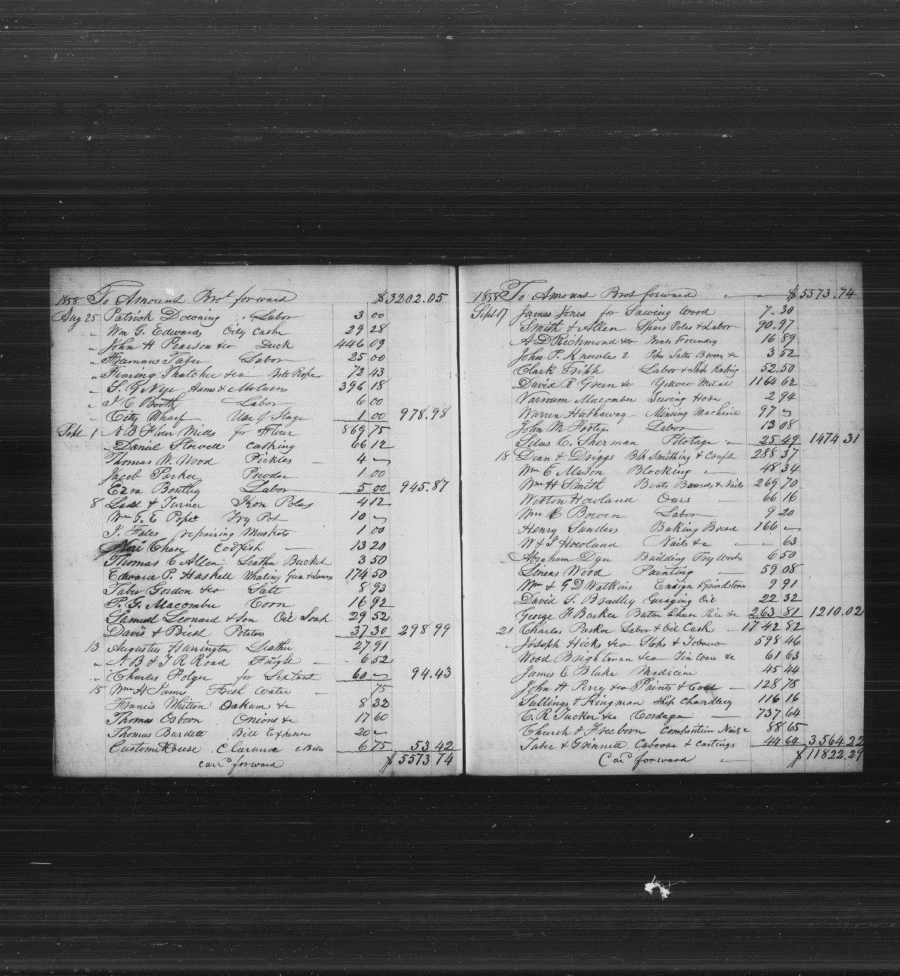 1858 To Amount Brot forward $3202.05
Aug 25 Patrick Downing " Labor 3 00
" Wm G. Edwards City Cash 29 28
" John H Pearson &co Duck 446 09
" Labor 25 00
" Fearing Thatcher &co Bolt Rope 72 43
" Hams & Molasses 396 18
" Labor 6 00
" City Wharf Use of Stage 1 00 978.98
Sept 1 Mills for Flour 869 75
" Daniel Stowell casking 66 12
Thomas W. Wood Pickles - 4 ~
Jacob Parker Powder 1 00
Ezra Bentley Labor 5 00 945.87
8 Ladd & Turner Iron Poles 4 12
Wm G. E Pope Try Pot 10 ~
J. Fales repairing Muskets 1 00
Chase Codfish 13 20
Thomas C Allen Leather Bucket 3 50
Edward P. Haskell Whaling Gun & Lances 174 50
Taber Gordon &co Salt 8 93
P. G. Macomber Corn 16 92
Samuel Leonard & Son Oil Soap 29 52
Davis & Potatoes 37.30 298 99
13 Augustus Harrington Leather 27 91
" Road 6 52
" Charles for Sextant 60 ~ 94.43
15 Wm H James Fresh Water 75
Francis Whitton Oakum &c 8 32
Thomas Osborn Onions &c 17 60
Thomas Burdett Bill Expense 20 ~
Custom House Clearance & Bills 6 75 53 42
card forward $5573 74
1858 To Amount Brot forward $5573.74
Sept 17 James Jones for Sawing Wood 7.30
" Smith & Allen Spars Poles & Labor 90.97
" A D Richmond &co Brass Foundry 16 89
" John P. Knowles 2 3 52
" Clark Labor & 52.50
" David R Green &c Yellow Metal 1164 62
" Varnum Macomber Sewing Hose 2 94
" Warren Hathaway Mincing Machine 97 ~
" John M Foster Labor 13 08
" Silas C. Sherman Pilotage " 25 49 1474.31
18 Dean & Driggs Blk Smithing & 288 37
Wm E Mason Blocking 48 34
Wm H Smith Boats Boards & Nails 269 70
Weston Howland Oars 66 16
Wm Bowen Labor 9 20
Henry Sanders Baking Bread 166 ~
W & S Howland Nails &c 63
Abraham Dyer Building Try Works 6 50
Lineas Wood Painting 59 08
Wm & G D Watkins Ensign & Grindstone 9 91
David S. Bradley Gauging Oil 22 32
George F Barker Butter Cheese Rice &c 263 81 1210.02
21 Charles Parker Labor & Oil Cash 1742 82
" Joseph Hicks &co Slops & Tobacco 598 46
Wood Brightman &co Tin Ware &c 61 63
James E Blake Medicine 45 44
John H Perry &co Paints & 128 78
Tillings & Kingman Ship Chandlery 116 16
E. R Tucker &co Cordage 737 64
Church & Freeborn Composition Nails &c 88 65
Taber & Grinnell Caboose & Castings 44 64 3564.22
Card forward $11822.29